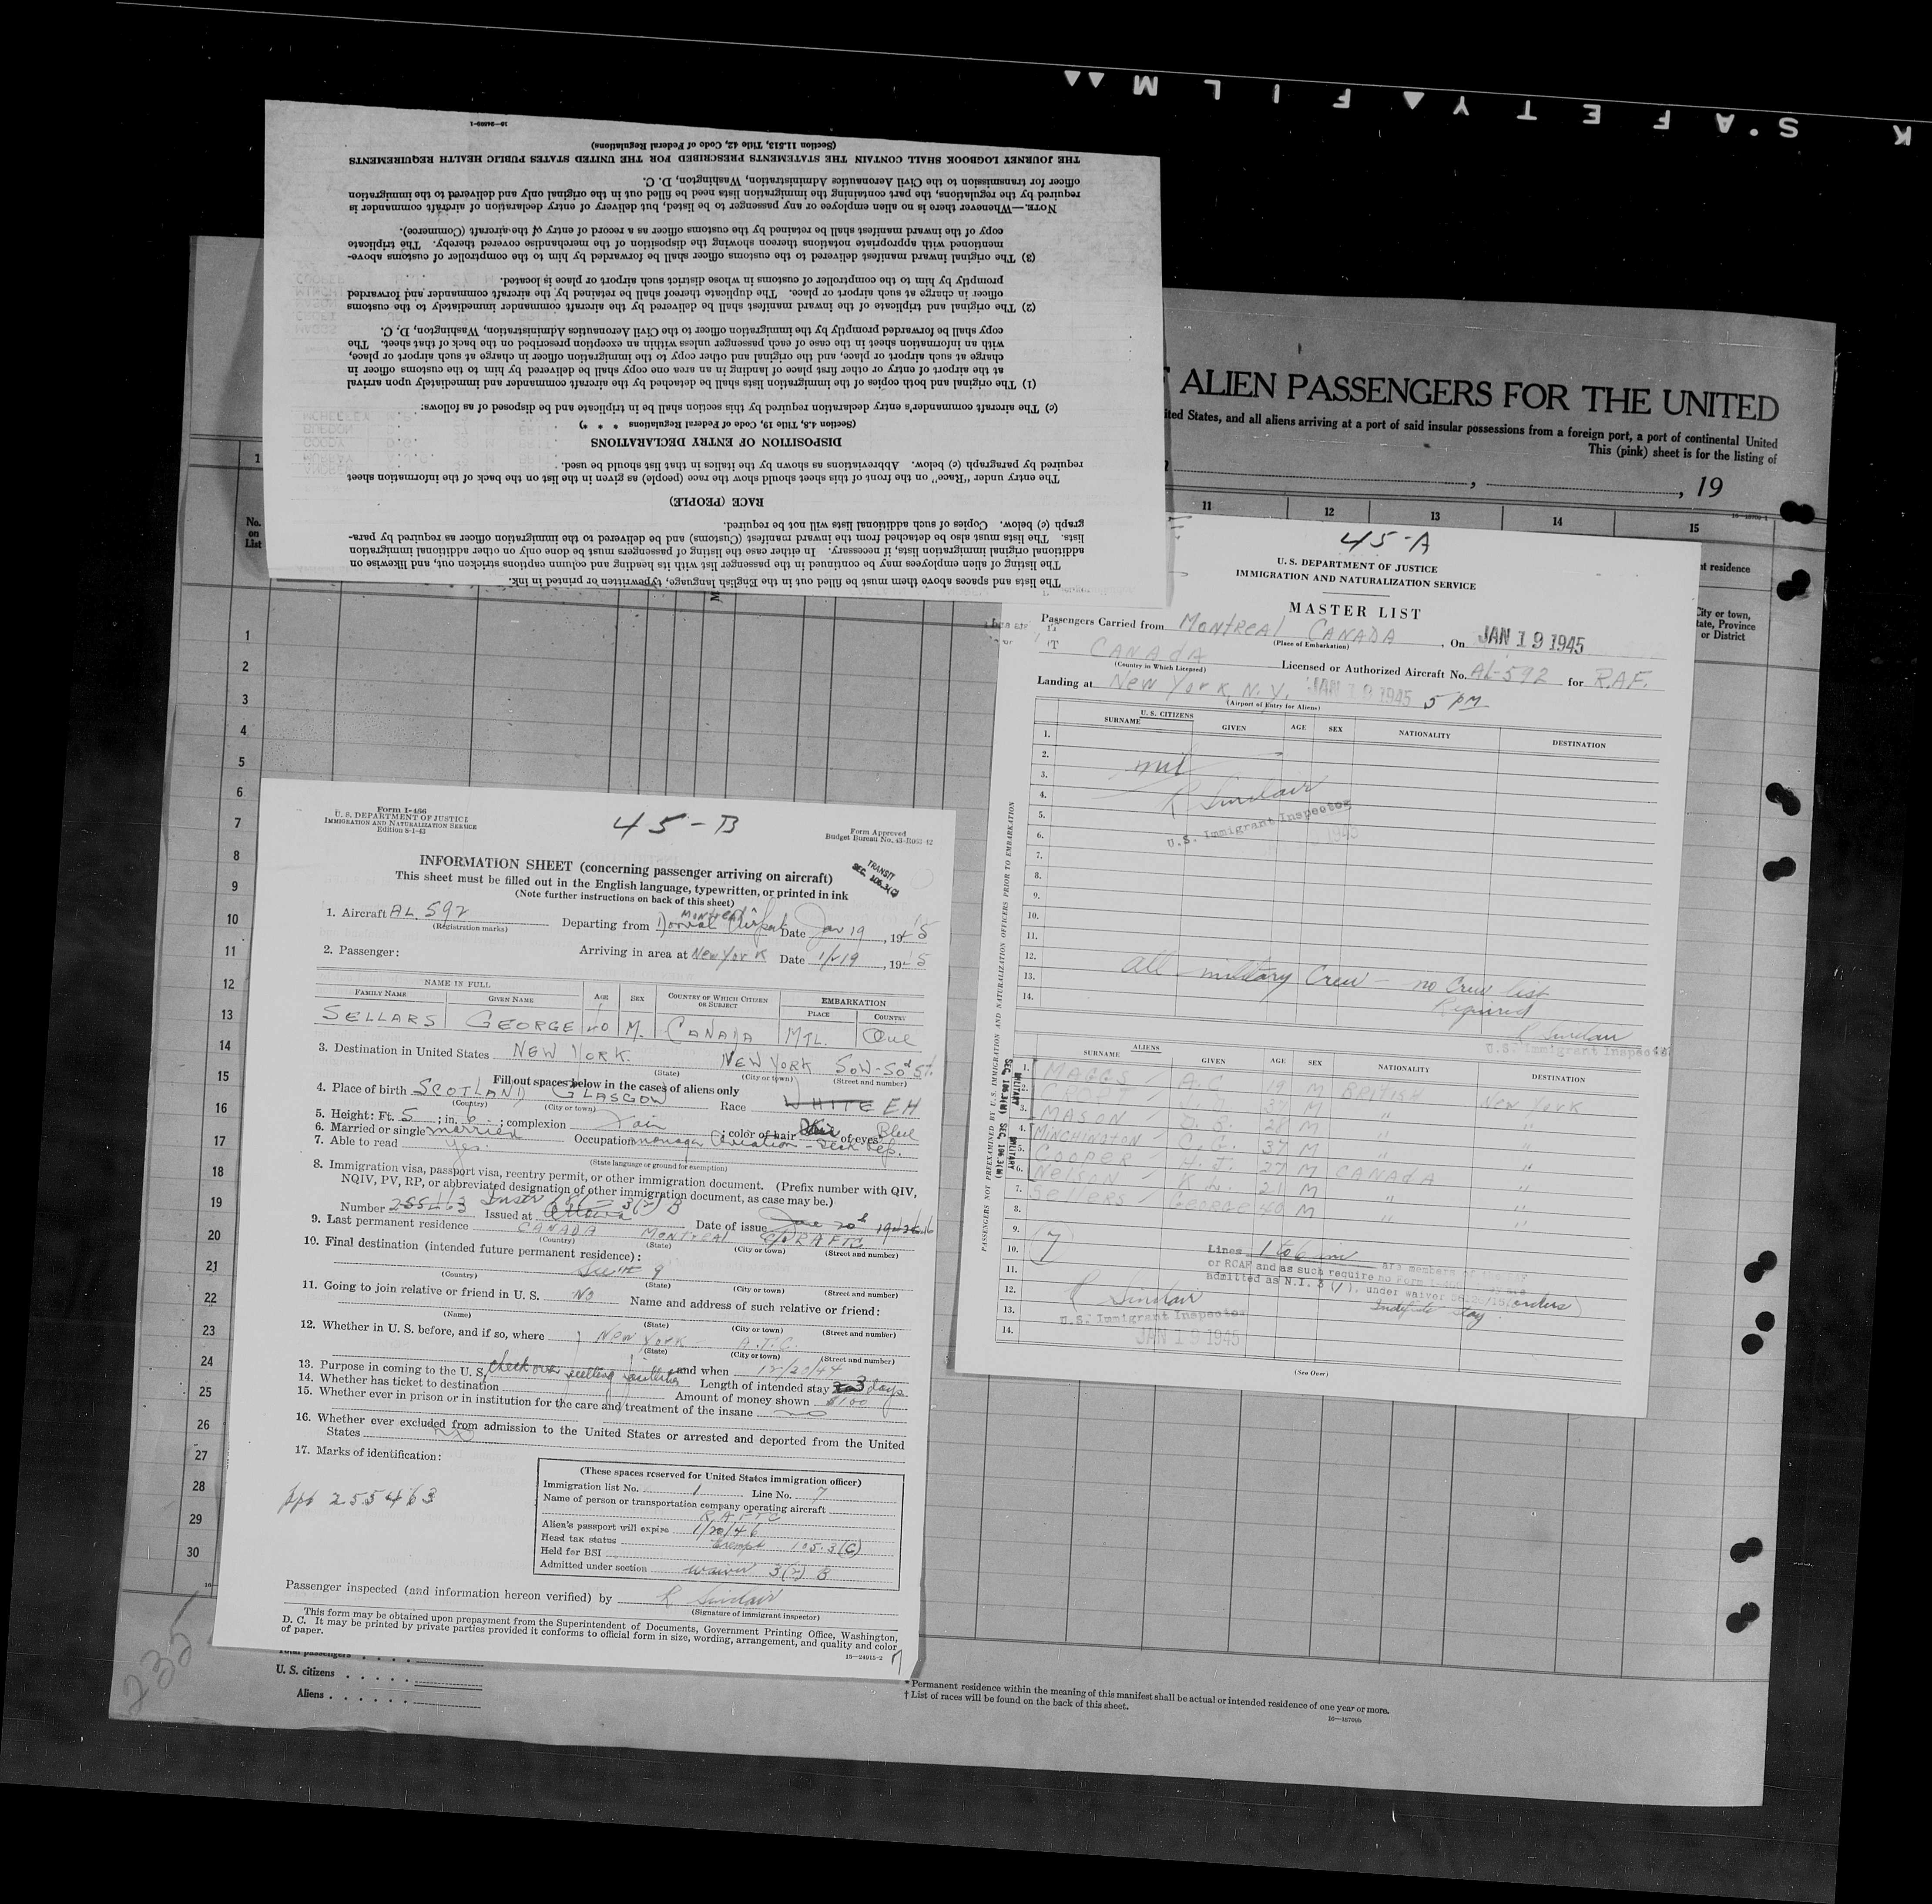 K S·AFETY FILM
16—24909-1
(Section 11.513, Title 42, Code of Federal Regulations)
THE JOURNEY LOGBOOK SHALL CONTAIN THE STATEMENTS PRESCRIBED FOR THE UNITED STATES PUBLIC HEALTH REQUIREMENTS
officer for transmission to the Civil Aeronautics Administration, Washington, D. C.
required by the regulations, the part containing the immigration lists need be filled out in the original only and delivered to the immigration
NOTE.—Whenever there is no alien employee or any passenger to be listed, but delivery of entry declaration of aircraft commander is
copy of the inward manifest shall be retained by the customs officer as a record of entry of the aircraft (Commerce).
mentioned with appropriate notations thereon showing the disposition of the merchandise covered thereby. The triplicate
(3) The original inward manifest delivered to the customs officer shall be forwarded by him to the comptroller of customs above-
promptly by him to the comptroller of customs in whose district such airport or place is located.
officer in charge at such airport or place. The duplicate thereof shall be retained by the aircraft commander and forwarded
(2) The original and triplicate of the inward manifest shall be delivered by the aircraft commander immediately to the customs
copy shall be forwarded promptly by the immigration officer to the Civil Aeronautics Administration, Washington, D. C.
with an information sheet in the case of each passenger unless within an exception prescribed on the back of that sheet. The
charge at such airport or place, and the original and other copy to the immigration officer in charge at such airport or place,
at the airport of entry or other first place of landing in an area one copy shall be delivered by him to the customs officer in
(1) The original and both copies of the immigration lists shall be detached by the aircraft commander and immediately upon arrival
(c) The aircraft commander's entry declaration required by this section shall be in triplicate and be disposed of as follows:
(Section 4.8, Title 19, Code of Federal Regulations * * *)
DISPOSITION OF ENTRY DECLARATIONS
required by paragraph (c) below. Abbreviations as shown by the italics in that list should be used.
The entry under "Race" on the front of this sheet should show the race (people) as given in the list on the back of the information sheet
RACE (PEOPLE)
graph (c) below. Copies of such additional lists will not be required.
lists. The lists must also be detached from the inward manifest (Customs) and be delivered to the immigration officer as required by para-
additional original immigration lists, if necessary. In either case the listing of passengers must be done only on other additional immigration
The listing of alien employees may be continued in the passenger list with its heading and column captions stricken out, and likewise on
The lists and spaces above them must be filled out in the English language, typewritten or printed in ink.
ALIEN PASSENGERS FOR THE UNITED
ited States, and all aliens arriving at a port of said insular possessions from a foreign port, a port of continental United
This (pink) sheet is for the listing of
, , 19
11 12 13 14 15
t residence
City or town,
tate, Province
or District
1
No.
on
List
1
2
3
4
5
6
7
8
9
10
11
12
13
14
15
16
17
18
19
20
21
22
23
24
25
26
27
28
29
30
45-A
U. S. DEPARTMENT OF JUSTICE
IMMIGRATION AND NATURALIZATION SERVICE
MASTER LIST
Passengers Carried from Montreal CANADA , On JAN 19 1945
(Place of Embarkation)
CANADA Licensed or Authorized Aircraft No. AL-592 for R.A.F.
(Country in Which Licensed)
Landing at New York N.Y. JAN 19 1945 5 PM
(Airport of Entry for Aliens)
U. S. CITIZENS
SURNAME GIVEN AGE SEX NATIONALITY DESTINATION
1.
2.
3. nil
4. R Sinclair
5. U.S. Immigrant Inspector
6. 1945
7.
8.
9.
10.
11.
12. all military Crew — no Crew list
13. Required
14.
R Sinclair
U.S. Immigrant Inspector
PASSENGERS NOT PREEXAMINED BY U. S. IMMIGRATION AND NATURALIZATION OFFICERS PRIOR TO EMBARKATION
ALIENS
SURNAME GIVEN AGE SEX NATIONALITY DESTINATION
MILITARY SEC. 106.3(W)
MILITARY SEC. 106.3(W)
1. MAGGS A. C. M BRITISH New York
2. 37 M " "
3. MASON 28 M " "
4. MINCHINGTON C. C. 37 M " "
5. COOPER 27 M CANADA "
6. NELSON K. L. 21 M " "
7. SELLERS GEORGE 40 M " "
8.
9.
10. 7 Lines 1 to 6 are members of the RAF
11. or RCAF and as such require no Form
12. admitted as N.I. 3(1), under waiver (orders)
R Sinclair Indefinite stay
13. U.S. Immigrant Inspector
14. JAN 19 1945
(See Over)
Form I-466
U. S. DEPARTMENT OF JUSTICE
IMMIGRATION AND NATURALIZATION SERVICE
Edition 8-1-43
45-B
Form Approved
Budget Bureau No. 43-R063 42
TRANSIT
SEC. 105.3(C)
INFORMATION SHEET (concerning passenger arriving on aircraft)
This sheet must be filled out in the English language, typewritten, or printed in ink
(Note further instructions on back of this sheet)
1. Aircraft AL 592 Departing from Montreal Dorval Airport Date Jan 19 , 1945
(Registration marks)
2. Passenger: Arriving in area at New York Date 1/19 , 1945
NAME IN FULL
FAMILY NAME GIVEN NAME AGE SEX COUNTRY OF WHICH CITIZEN OR SUBJECT EMBARKATION
PLACE COUNTRY
SELLARS GEORGE 40 M. CANADA MTL. Que
3. Destination in United States NEW YORK NEW YORK 50W-50th St.
(State) (City or town) (Street and number)
Fill out spaces below in the cases of aliens only
4. Place of birth SCOTLAND GLASGOW Race WHITE EH
(Country) (City or town)
5. Height: Ft. 5 ; in. 6 ; complexion Fair ; color of hair of eyes Blue
6. Married or single married Occupation manager
7. Able to read yes.
(State language or ground for exemption)
8. Immigration visa, passport visa, reentry permit, or other immigration document. (Prefix number with QIV,
NQIV, PV, RP, or abbreviated designation of other immigration document, as case may be.)
Number 255463 Issued at Ottawa 3(2) B Date of issue
9. Last permanent residence CANADA MONTREAL c/o RAFTC
(Country) (State) (City or town) (Street and number)
10. Final destination (intended future permanent residence):
See # 9
(Country) (State) (City or town) (Street and number)
11. Going to join relative or friend in U. S. No Name and address of such relative or friend:
(Name) (State) (City or town) (Street and number)
12. Whether in U. S. before, and if so, where New York A.T.C.
(State) (City or town) (Street and number)
and when 12/20/44
13. Purpose in coming to the U. S. check over Length of intended stay 3 days
14. Whether has ticket to destination Amount of money shown $100
15. Whether ever in prison or in institution for the care and treatment of the insane no
16. Whether ever excluded from admission to the United States or arrested and deported from the United
States No
17. Marks of identification:
ppt 255463
(These spaces reserved for United States immigration officer)
Immigration list No. 1 Line No. 7
Name of person or transportation company operating aircraft
RAFTC
Alien's passport will expire 1/20/46
Head tax status Exempt 105.3(C)
Held for BSI
Admitted under section waiver 3(2) B
Passenger inspected (and information hereon verified) by R Sinclair
(Signature of immigrant inspector)
This form may be obtained upon prepayment from the Superintendent of Documents, Government Printing Office, Washington,
D. C. It may be printed by private parties provided it conforms to official form in size, wording, arrangement, and quality and color
of paper.
16—24915-2
235
Total passengers
U. S. citizens
Aliens
* Permanent residence within the meaning of this manifest shall be actual or intended residence of one year or more.
† List of races will be found on the back of this sheet.